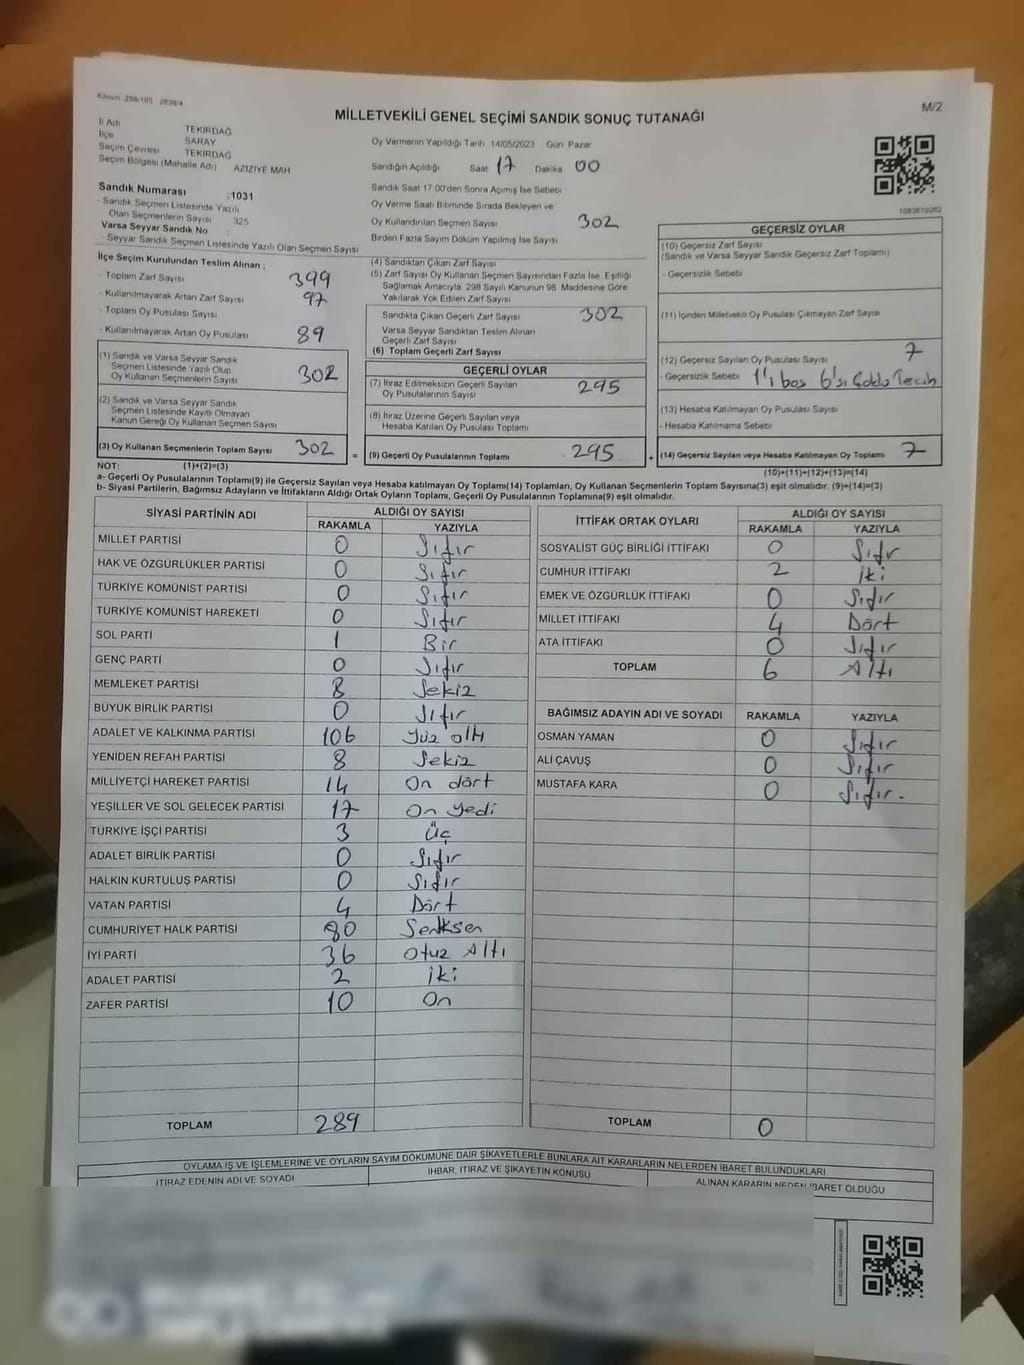 Kanun: 298/105 2839/4
M/2
MİLLETVEKİLİ GENEL SEÇİMİ SANDIK SONUÇ TUTANAĞI
İl Adı TEKİRDAĞ
İlçe SARAY
Seçim Çevresi TEKİRDAĞ
Seçim Bölgesi (Mahalle Adı) AZIZIYE MAH
Oy Vermenin Yapıldığı Tarih 14/05/2023 Gün Pazar
Sandığın Açıldığı Saat 17 Dakika 00
Sandık Saat 17:00'den Sonra Açımış İse Sebebi
Oy Verme Saati Bitiminde Sırada Bekleyen ve
Oy Kullandırılan Seçmen Sayısı 302
Birden Fazla Sayım Döküm Yapılmış İse Sayısı
Sandık Numarası :1031
- Sandık Seçmen Listesinde Yazılı
Olan Seçmenlerin Sayısı 325
Varsa Seyyar Sandık No :
- Seyyar Sandık Seçmen Listesinde Yazılı Olan Seçmen Sayısı
İlçe Seçim Kurulundan Teslim Alınan ;
- Toplam Zarf Sayısı 399
- Kullanılmayarak Artan Zarf Sayısı 97
- Toplam Oy Pusulası Sayısı
- Kullanılmayarak Artan Oy Pusulası 89
(1) Sandık ve Varsa Seyyar Sandık
Seçmen Listesinde Yazılı Olup
Oy Kullanan Seçmenlerin Sayısı 302
(2) Sandık ve Varsa Seyyar Sandık
Seçmen Listesinde Kayıtlı Olmayan
Kanun Gereği Oy Kullanan Seçmen Sayısı
(3) Oy Kullanan Seçmenlerin Toplam Sayısı 302 =
(4) Sandıktan Çıkan Zarf Sayısı
(5) Zarf Sayısı Oy Kullanan Seçmen Sayısından Fazla İse, Eşitliği
Sağlamak Amacıyla 298 Sayılı Kanunun 98. Maddesine Göre
Yakılarak Yok Edilen Zarf Sayısı
Sandıkta Çıkan Geçerli Zarf Sayısı 302
Varsa Seyyar Sandıktan Teslim Alınan
Geçerli Zarf Sayısı
(6) Toplam Geçerli Zarf Sayısı
GEÇERLİ OYLAR
(7) İtiraz Edilmeksizin Geçerli Sayılan
Oy Pusulalarının Sayısı 295
(8) İtiraz Üzerine Geçerli Sayılan veya
Hesaba Katılan Oy Pusulası Toplamı
(9) Geçerli Oy Pusulalarının Toplamı 295 +
GEÇERSİZ OYLAR
(10) Geçersiz Zarf Sayısı
(Sandık ve Varsa Seyyar Sandık Geçersiz Zarf Toplamı)
- Geçersizlik Sebebi
(11) İçinden Milletvekili Oy Pusulası Çıkmayan Zarf Sayısı
(12) Geçersiz Sayılan Oy Pusulası Sayısı 7
- Geçersizlik Sebebi 1'i boş 6'sı Çoklu Tercih
(13) Hesaba Katılmayan Oy Pusulası Sayısı
- Hesaba Katılmama Sebebi
(14) Geçersiz Sayılan veya Hesaba Katılmayan Oy Toplamı 7
NOT: (1)+(2)=(3)
(10)+(11)+(12)+(13)=(14)
a- Geçerli Oy Pusulalarının Toplamı(9) ile Geçersiz Sayılan veya Hesaba Katılmayan Oy Toplamı(14) Toplamları, Oy Kullanan Seçmenlerin Toplam Sayısına(3) eşit olmalıdır. (9)+(14)=(3)
b- Siyasi Partilerin, Bağımsız Adayların ve İttifakların Aldığı Ortak Oyların Toplamı, Geçerli Oy Pusulalarının Toplamına(9) eşit olmalıdır.
SİYASİ PARTİNİN ADI ALDIĞI OY SAYISI
RAKAMLA YAZIYLA
MİLLET PARTİSİ 0 Sıfır
HAK VE ÖZGÜRLÜKLER PARTİSİ 0 Sıfır
TÜRKİYE KOMÜNİST PARTİSİ 0 Sıfır
TÜRKİYE KOMÜNİST HAREKETİ 0 Sıfır
SOL PARTİ 1 Bir
GENÇ PARTİ 0 Sıfır
MEMLEKET PARTİSİ 8 Sekiz
BÜYÜK BİRLİK PARTİSİ 0 Sıfır
ADALET VE KALKINMA PARTİSİ 106 Yüz altı
YENİDEN REFAH PARTİSİ 8 Sekiz
MİLLİYETÇİ HAREKET PARTİSİ 14 On dört
YEŞİLLER VE SOL GELECEK PARTİSİ 17 On yedi
TÜRKİYE İŞÇİ PARTİSİ 3 Üç
ADALET BİRLİK PARTİSİ 0 Sıfır
HALKIN KURTULUŞ PARTİSİ 0 Sıfır
VATAN PARTİSİ 4 Dört
CUMHURİYET HALK PARTİSİ 80 Senksen
İYİ PARTİ 36 Otuz Altı
ADALET PARTİSİ 2 İki
ZAFER PARTİSİ 10 On
TOPLAM 289
İTTİFAK ORTAK OYLARI ALDIĞI OY SAYISI
RAKAMLA YAZIYLA
SOSYALİST GÜÇ BİRLİĞİ İTTİFAKI 0 Sıfır
CUMHUR İTTİFAKI 2 İki
EMEK VE ÖZGÜRLÜK İTTİFAKI 0 Sıfır
MİLLET İTTİFAKI 4 Dört
ATA İTTİFAKI 0 Sıfır
TOPLAM 6 Altı
BAĞIMSIZ ADAYIN ADI VE SOYADI RAKAMLA YAZIYLA
OSMAN YAMAN 0 Sıfır
ALİ ÇAVUŞ 0 Sıfır
MUSTAFA KARA 0 Sıfır.
TOPLAM 0
OYLAMA İŞ VE İŞLEMLERİNE VE OYLARIN SAYIM DÖKÜMÜNE DAİR ŞİKAYETLERLE BUNLARA AİT KARARLARIN NELERDEN İBARET BULUNDUKLARI
İTİRAZ EDENİN ADI VE SOYADI İHBAR, İTİRAZ VE ŞİKAYETİN KONUSU ALINAN KARARIN NEDEN İBARET OLDUĞU